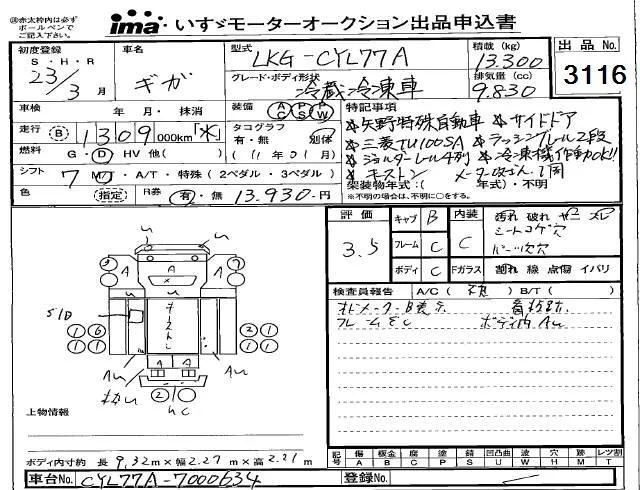 ㊟赤太枠内は必ずボールペンでご記入下さい。
ima いすゞモーターオークション出品申込書
初度登録 S・H・R 23/3月
車名 ギガ
型式 LKG-CYL77A
積載(kg) 13.300
出品No. 3116
グレード・ボディ形状 冷蔵冷凍車
排気量(cc) 9.830
車検 年・月・抹消
装備 AC PS PW
特記事項
走行 B 1309000km「水」
タコグラフ 有・無 別体
★矢野特殊自動車 ★サイドドア
★三菱TU100SA ★ラッシングレール2段
燃料 G・D・HV 他( )
(11年01月)
★ジョルダーレール4列 ★冷凍機作動OK!!
シフト 7 MT・A/T・特殊(2ペダル・3ペダル)
★キーストン
架装物年式:( 年式)・不明
※不明の場合は、不明に○をする。
色 (指定)
R券 有・無 13.930-円
評価 3.5
キャブ B
フレーム C
ボディ C
内装 C
Fガラス
汚れ 破れ ヤニ スレ
シートコゲ穴
パーツ欠穴
割れ 線 点傷 イバリ
検査員報告 A/C( ) B/T( )
オドメーターB表示
フレームサC
ボディ内AU
S/D
A A
U U
1 6
1 1
2 2
1 1
A A
AU AU
2
UC
上物情報
ボディ内寸約 長 9,32m×幅2.27m×高2.21m
車台No. CYL77A-7000634
登録No.
記号 傷 A 鈑金 B 腐 C 塗 P 錆 S 凹凸曲 U 波 W 穴 H 跡 M レツ割 T